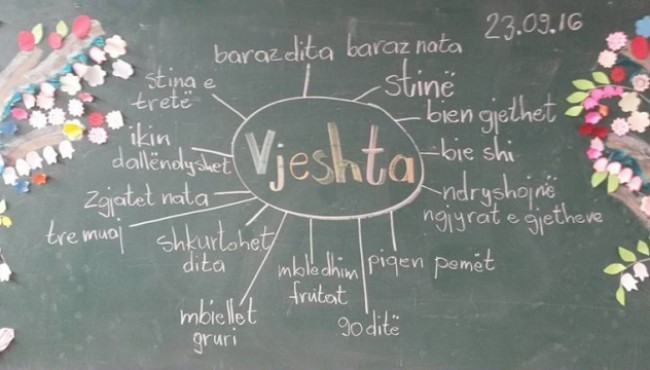 23.09.16
baraz dita baraz nata
stina e
tretë
stinë
bien gjethet
ikin
dallëndyshet
Vjeshta
bie shi
zgjatet nata
ndryshojnë
ngjyrat e gjetheve
tre muaj
shkurtohet
dita
mbledhim
frutat
piqen pemët
mbiellet
gruri
90 ditë